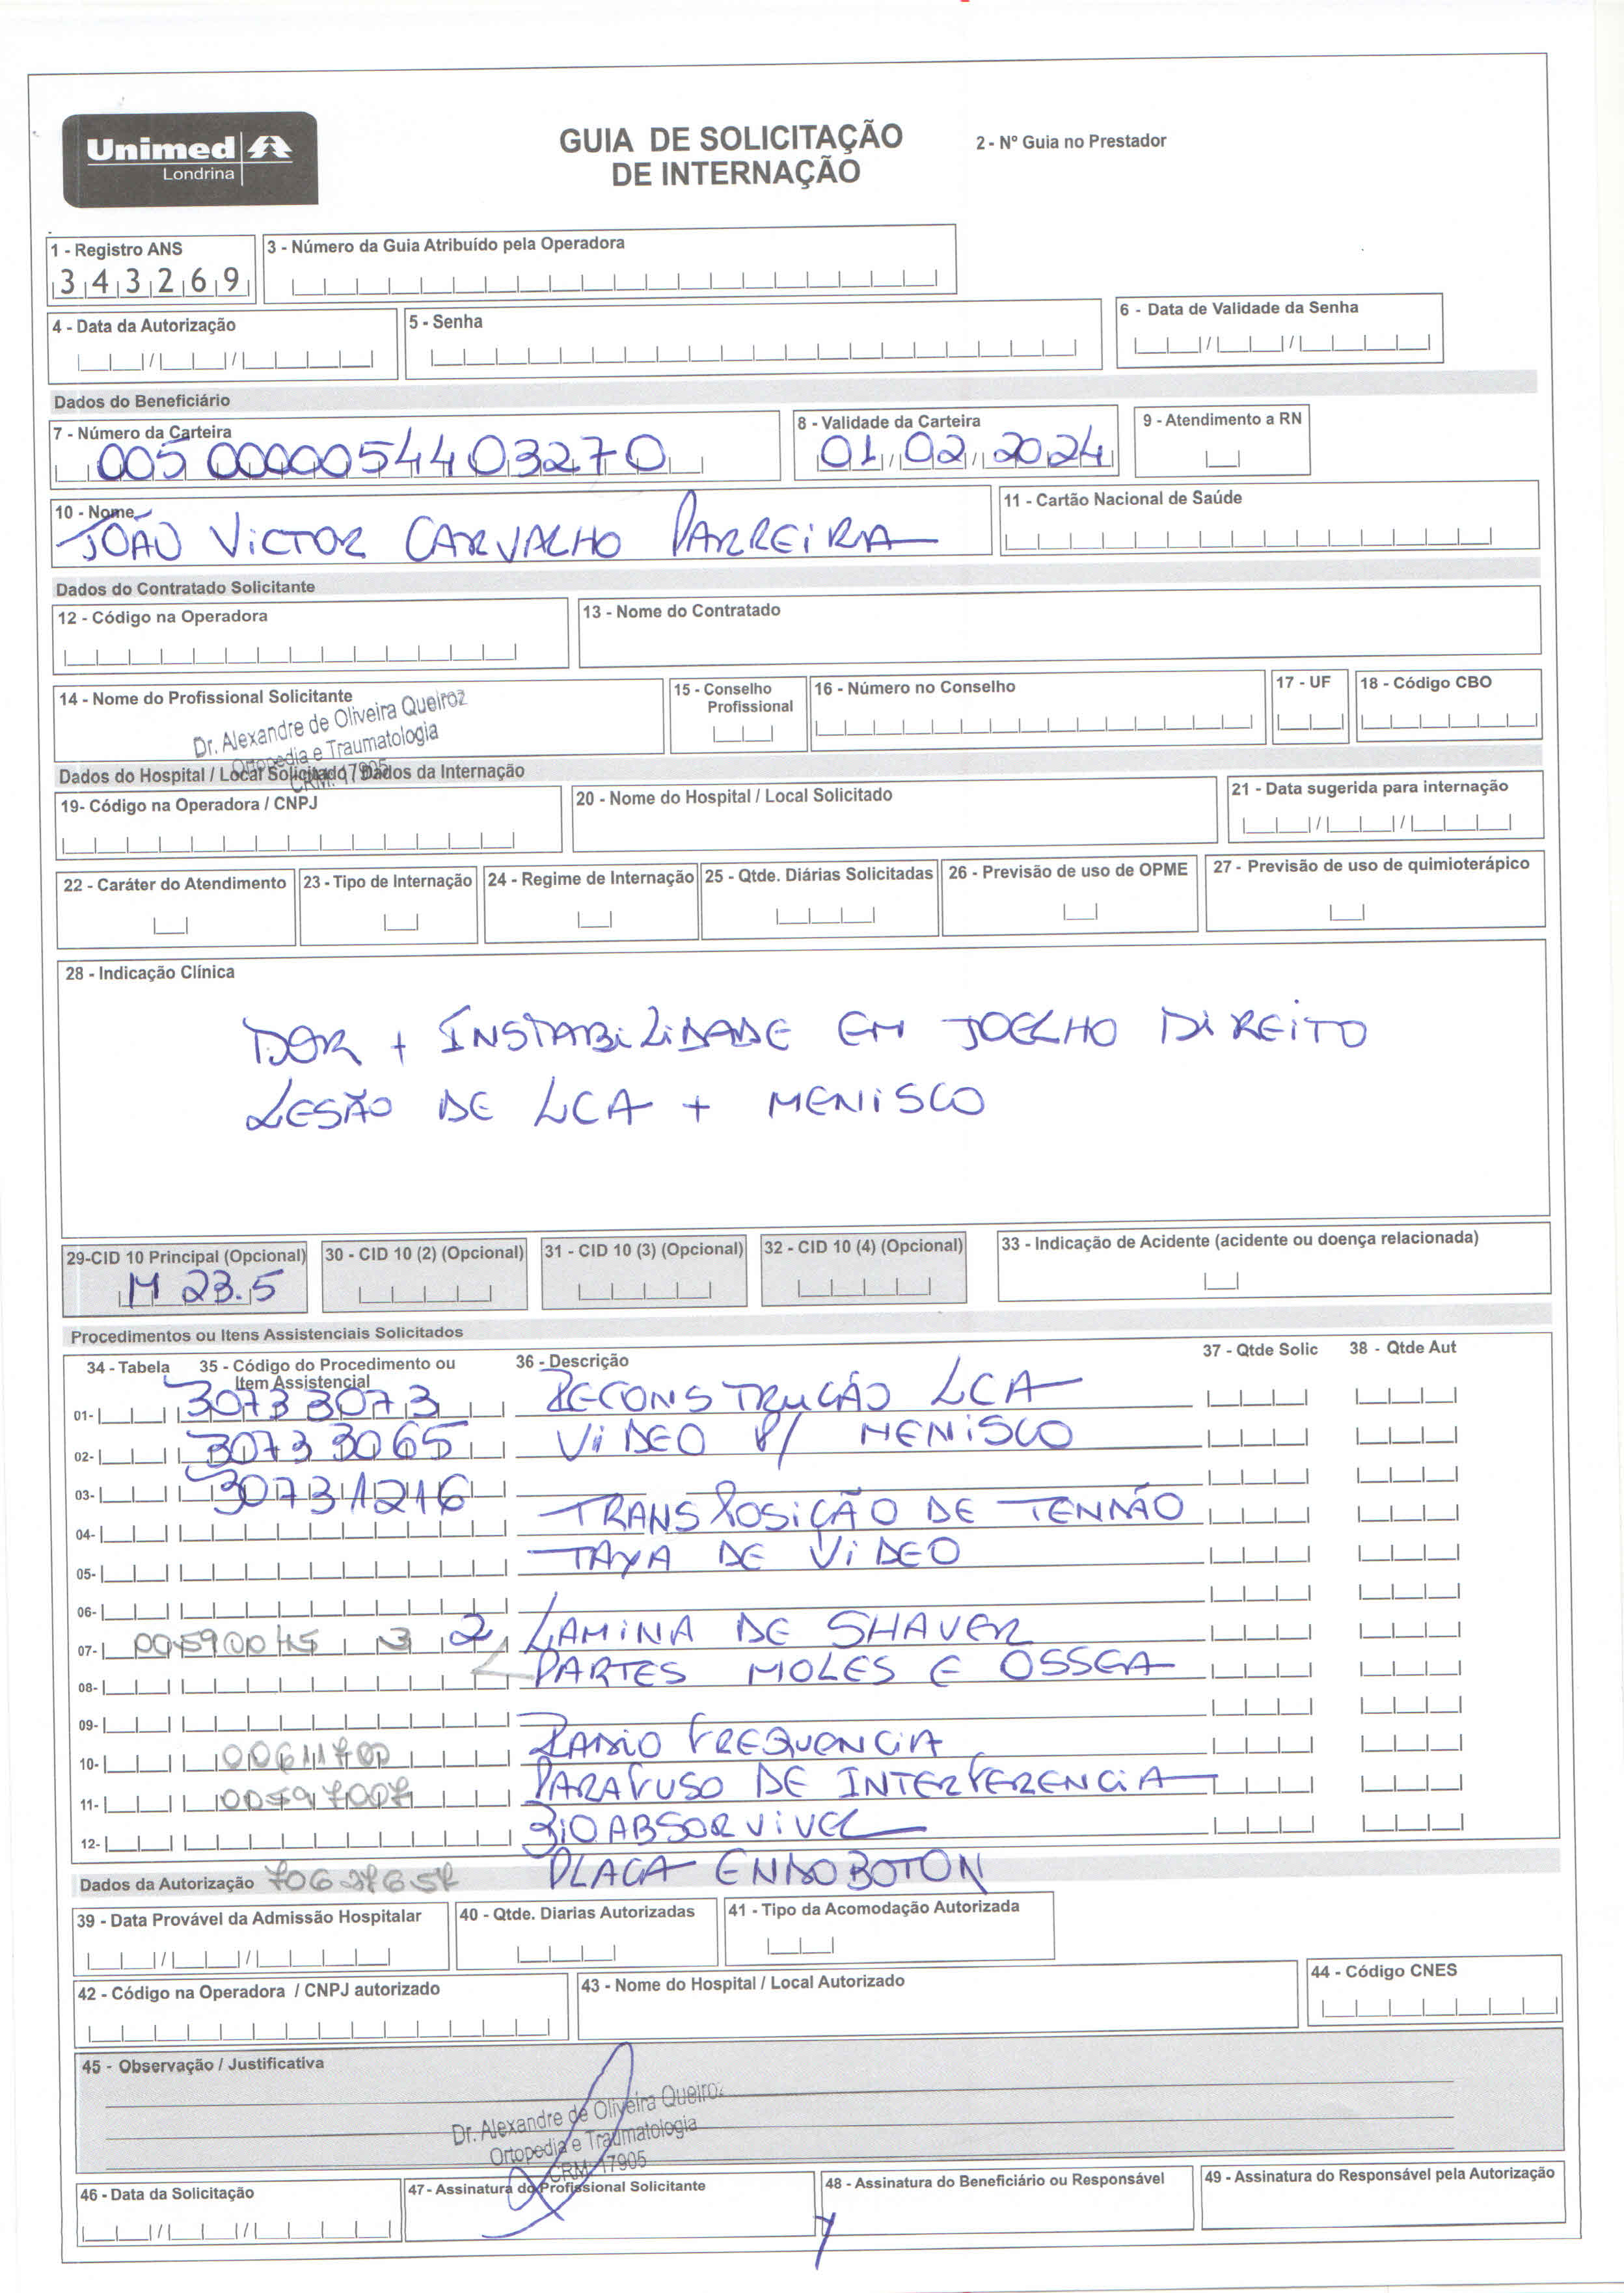 Unimed
Londrina
GUIA DE SOLICITAÇÃO
DE INTERNAÇÃO
2 - Nº Guia no Prestador
1 - Registro ANS
343269
3 - Número da Guia Atribuído pela Operadora
4 - Data da Autorização
5 - Senha
6 - Data de Validade da Senha
Dados do Beneficiário
7 - Número da Carteira
005 0000054403270
8 - Validade da Carteira
01 02 2024
9 - Atendimento a RN
10 - Nome
JOÃO VICTOR CARVALHO PARREIRA
11 - Cartão Nacional de Saúde
Dados do Contratado Solicitante
12 - Código na Operadora
13 - Nome do Contratado
14 - Nome do Profissional Solicitante
Dr. Alexandre de Oliveira Queiroz
Ortopedia e Traumatologia
CRM: 17905
15 - Conselho
Profissional
16 - Número no Conselho
17 - UF
18 - Código CBO
Dados do Hospital / Local Solicitado / Dados da Internação
19- Código na Operadora / CNPJ
20 - Nome do Hospital / Local Solicitado
21 - Data sugerida para internação
22 - Caráter do Atendimento
23 - Tipo de Internação
24 - Regime de Internação
25 - Qtde. Diárias Solicitadas
26 - Previsão de uso de OPME
27 - Previsão de uso de quimioterápico
28 - Indicação Clínica
DOR + INSTABILIDADE EM JOELHO DIREITO
LESÃO DE LCA + MENISCO
29-CID 10 Principal (Opcional)
M 23.5
30 - CID 10 (2) (Opcional)
31 - CID 10 (3) (Opcional)
32 - CID 10 (4) (Opcional)
33 - Indicação de Acidente (acidente ou doença relacionada)
Procedimentos ou Itens Assistenciais Solicitados
34 - Tabela
35 - Código do Procedimento ou
Item Assistencial
36 - Descrição
37 - Qtde Solic
38 - Qtde Aut
01- 30733073 RECONSTRUÇÃO LCA
02- 30733065 VIDEO P/ MENISCO
03- 30731216
04- TRANSPOSIÇÃO DE TENDÃO
05- TAXA DE VIDEO
06-
07- 2 LAMINA DE SHAVER
08- PARTES MOLES E OSSEA
09-
10- 00611700 RADIO FREQUENCIA
11- PARAFUSO DE INTERFERENCIA
12- BIOABSORVIVEL
Dados da Autorização
PLACA ENDOBOTON
39 - Data Provável da Admissão Hospitalar
40 - Qtde. Diarias Autorizadas
41 - Tipo da Acomodação Autorizada
42 - Código na Operadora / CNPJ autorizado
43 - Nome do Hospital / Local Autorizado
44 - Código CNES
45 - Observação / Justificativa
Dr. Alexandre de Oliveira Queiroz
Ortopedia e Traumatologia
CRM: 17905
46 - Data da Solicitação
47- Assinatura do Profissional Solicitante
48 - Assinatura do Beneficiário ou Responsável
49 - Assinatura do Responsável pela Autorização